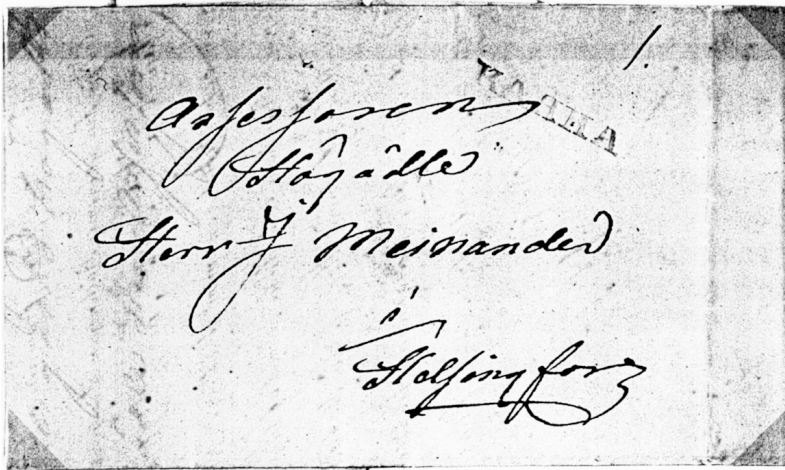 1.
Assessoren
Högädle
Herr J Meinander
i
Helsingfors